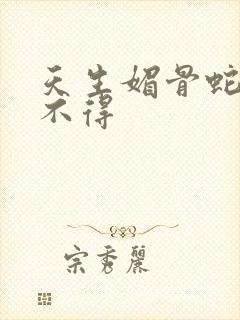 天生媚骨蛇
不得
宗秀丽